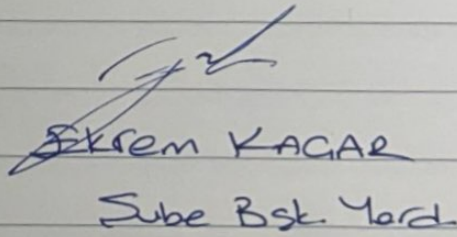 Ekrem KAGAR
Sube Bsk. Yard